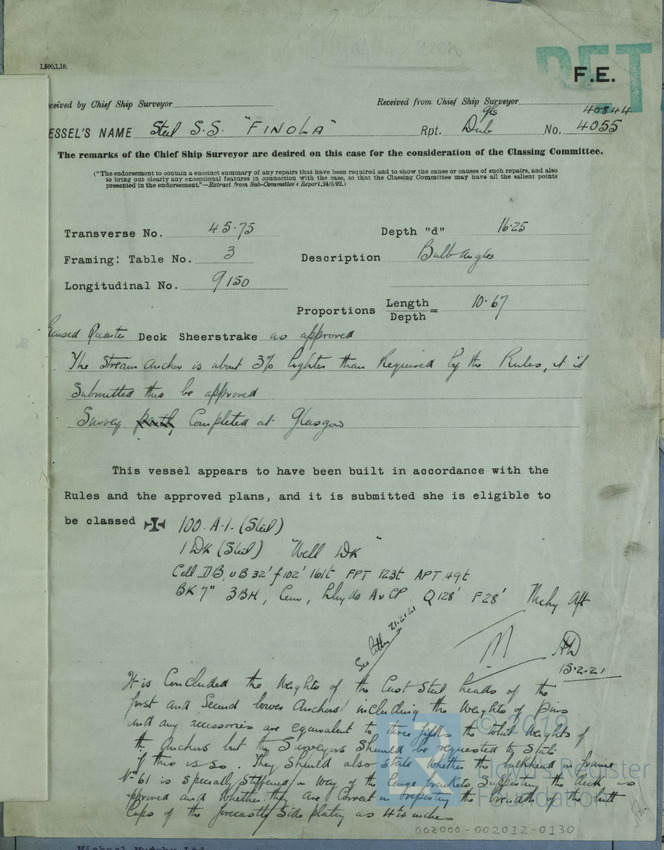 1,500,1,19.
RET
F.E.
eceived by Chief Ship Surveyor
Received from Chief Ship Surveyor
Gls 40844
ESSEL'S NAME Steel S.S. "FINOLA" Rpt. Dub No. 4055
The remarks of the Chief Ship Surveyor are desired on this case for the consideration of the Classing Committee.
("The endorsement to contain a succinct summary of any repairs that have been required and to show the cause or causes of such repairs, and also
to bring out clearly any exceptional features in connection with the case, so that the Classing Committee may have all the salient points
presented in the endorsement."—Extract from Sub-Committee's Report, 24/5/92.)
Transverse No. 45.75 Depth "d" 16.25
Framing: Table No. 3 Description Bulb angles
Longitudinal No. 9150
Proportions Length/Depth = 10.67
Raised Quarter Deck Sheerstrake as approved
The Stream Anchor is about 3% lighter than required by the Rules, it is
submitted this be approved
Survey completed at Glasgow
This vessel appears to have been built in accordance with the
Rules and the approved plans, and it is submitted she is eligible to
be classed ✠ 100.A.1. (Steel)
1 DK (Steel) "Well DK"
Cell DB, u B 32' f 102' 161t FPT 123t APT 49t
BK 7" 3BH, Cem, Lloyds A & CP Q 128' F 28' Mchy Aft
21.2.21
15.2.21
It is concluded the weights of the Cast Steel heads of the
first and second bower Anchors including the weights of pins
and any accessories are equivalent to three fifths the total weights of
the Anchors but the Surveyors should be requested to state
if this is so. They should also state whether the bulkhead in frame
No 61 is specially stiffened in way of the large brackets supporting the deck as
approved and whether they are correct in reporting the breadth of the butt
laps of the forecastle side plating as 4¼ inches
© 2019
Lloyd's Register
Foundation
002000-002012-0130